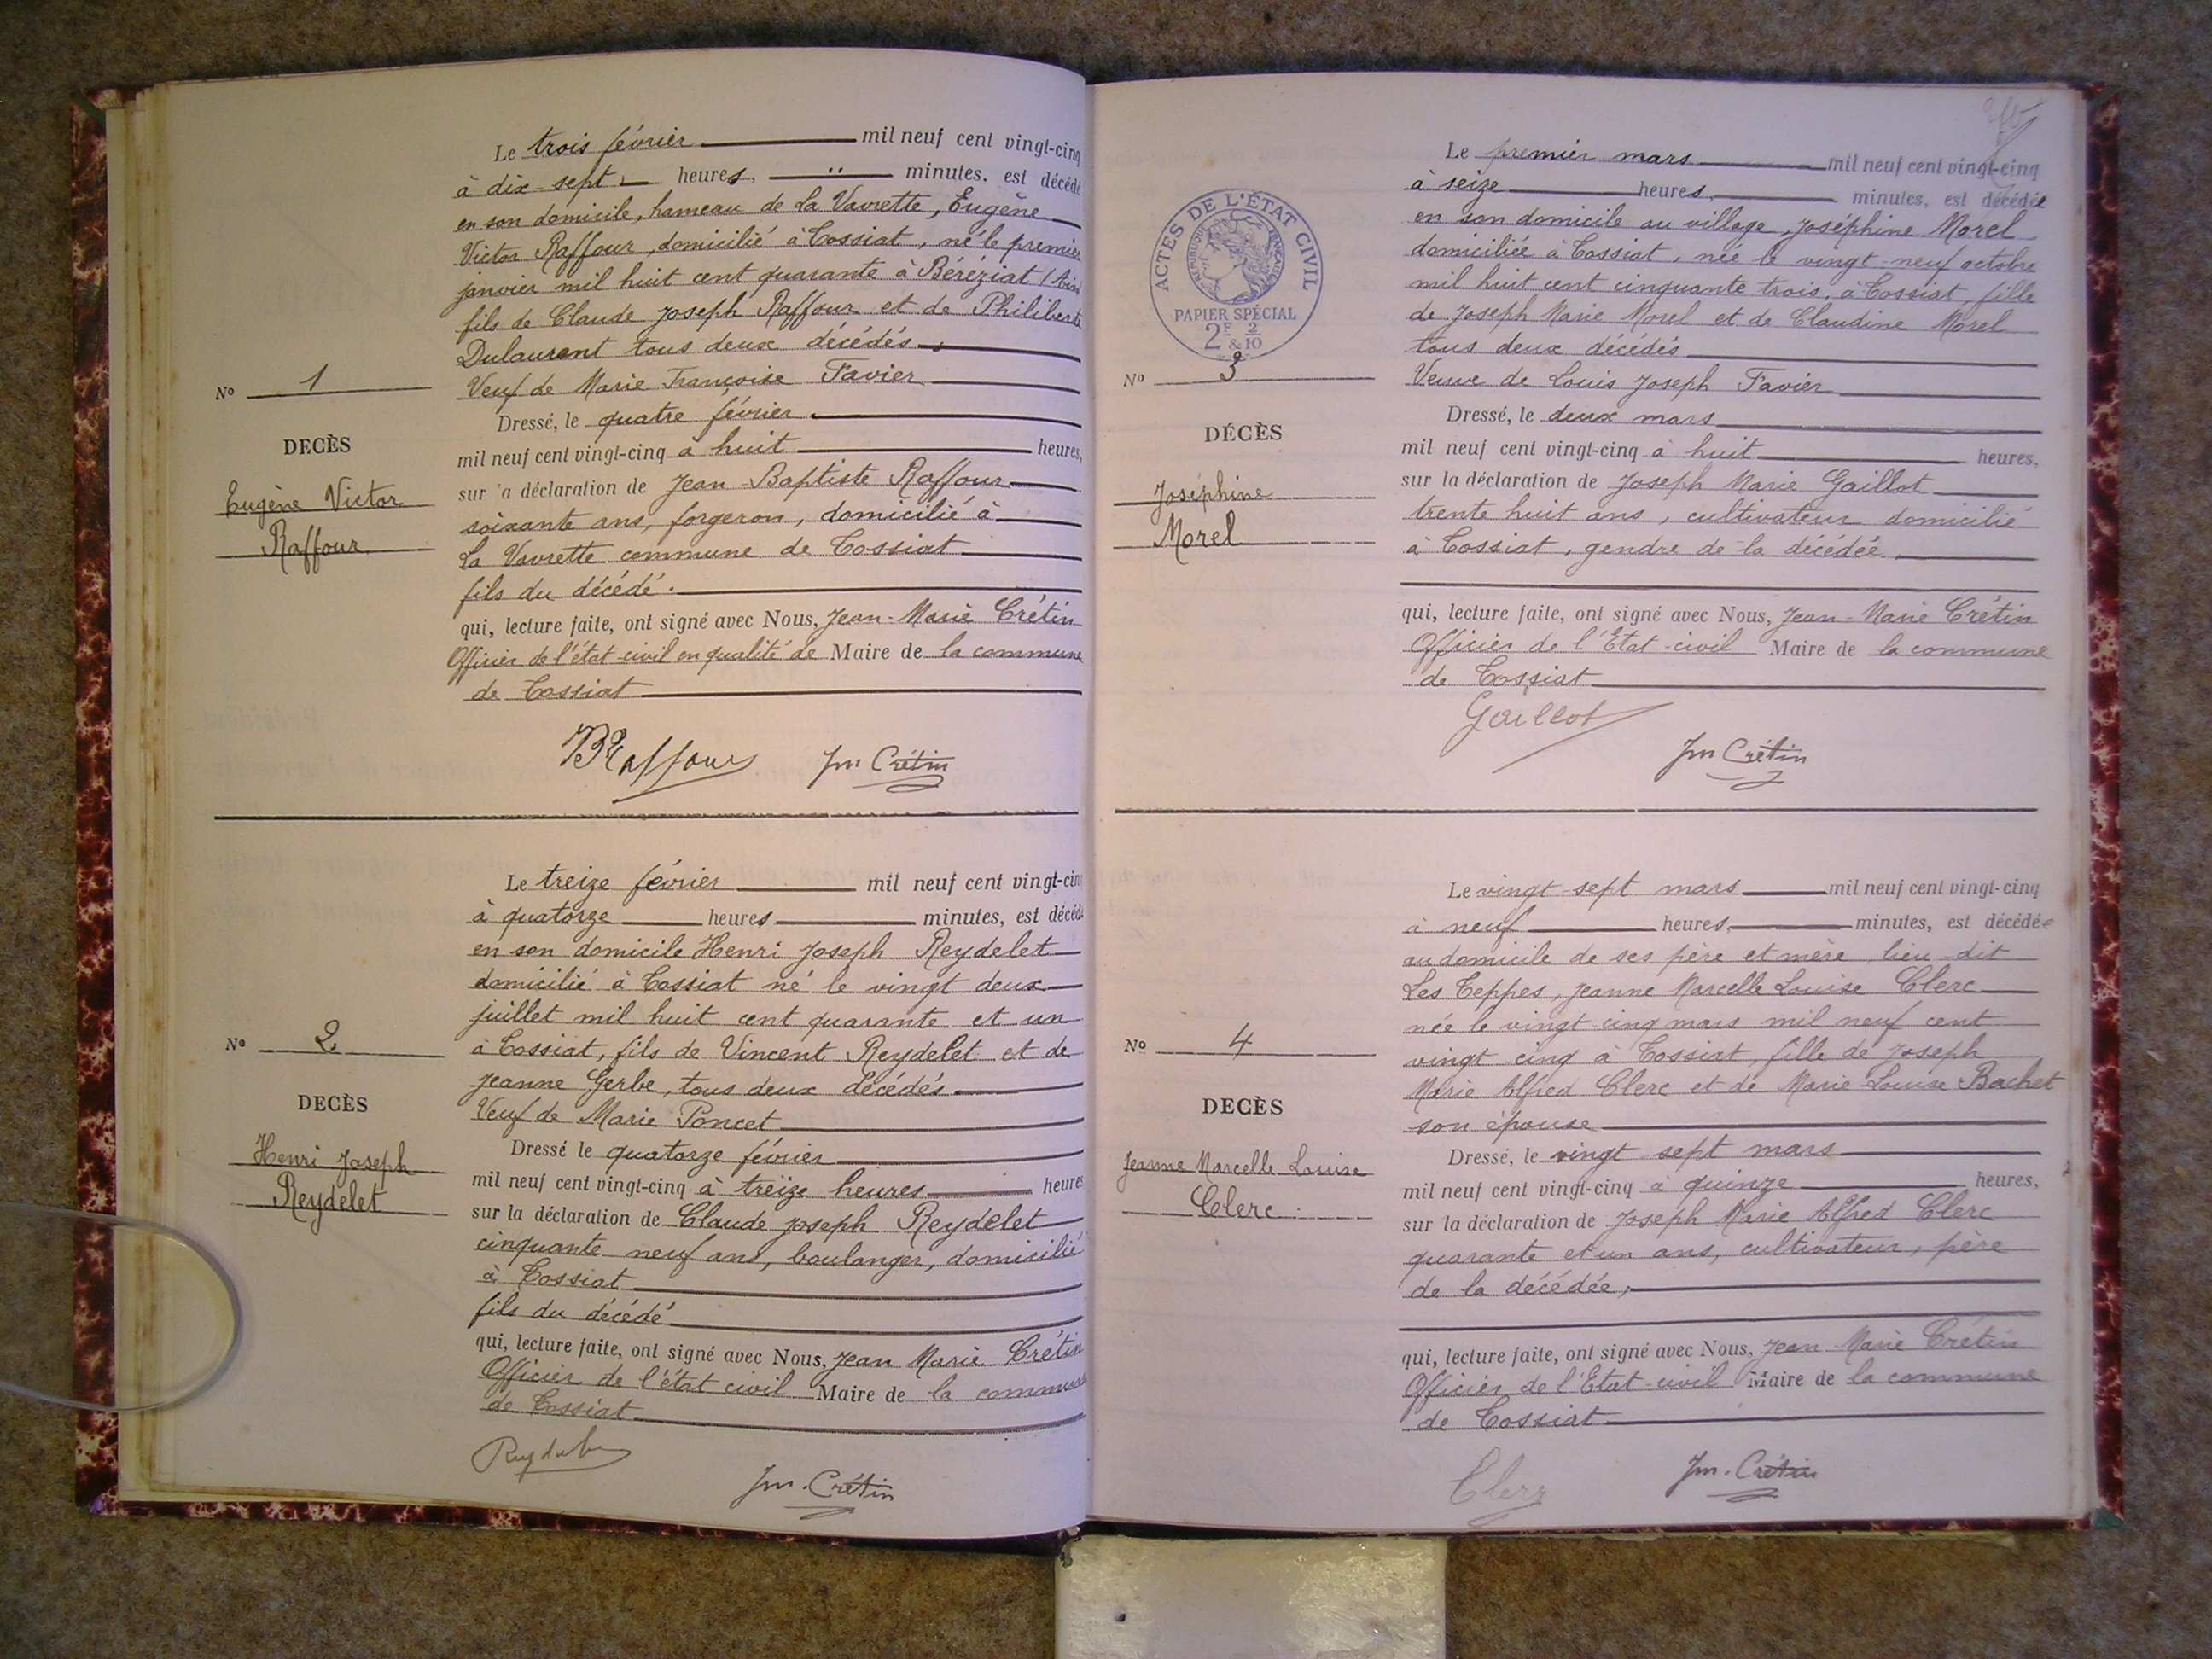 Le trois février mil neuf cent vingt-cinq
à dix-sept heures, " minutes, est décédé
en son domicile, hameau de La Vavrette, Eugène
Victor Raffour, domicilié à Tossiat, né le premier
janvier mil huit cent quarante à Béréziat (Ain
fils de Claude Joseph Raffour et de Philiberte
Dulaurent tous deux décédés,
Veuf de Marie Françoise Favier
No 1
Dressé, le quatre février
DECÈS
mil neuf cent vingt-cinq à huit heures,
sur la déclaration de Jean-Baptiste Raffour
Eugène Victor
Raffour
soixante ans, forgeron, domicilié à
La Vavrette commune de Tossiat
fils du décédé.
qui, lecture faite, ont signé avec Nous, Jean-Marie Crétin
Officier de l'état civil en qualité de Maire de la commune
de Tossiat
BRaffour Jm Crétin
Le treize février mil neuf cent vingt-cinq
à quatorze heures minutes, est décédé
en son domicile Henri Joseph Reydelet
domicilié à Tossiat né le vingt deux
juillet mil huit cent quarante et un
No 2
à Tossiat, fils de Vincent Reydelet et de
Jeanne Gerbe, tous deux décédés
Veuf de Marie Poncet
DECÈS
Henri Joseph
Reydelet
Dressé le quatorze février
mil neuf cent vingt-cinq à treize heures heures
sur la déclaration de Claude Joseph Reydelet
cinquante neuf ans, boulanger, domicilié
à Tossiat
fils du décédé
qui, lecture faite, ont signé avec Nous, Jean Marie Crétin
Officier de l'état civil Maire de la commune
de Tossiat
Jm. Crétin
Le premier mars mil neuf cent vingt-cinq
à seize heures, minutes, est décédée
en son domicile au village, Joséphine Morel
domiciliée à Tossiat, née le vingt-neuf octobre
mil huit cent cinquante trois, à Tossiat, fille
de Joseph Marie Morel et de Claudine Morel
tous deux décédés
Veuve de Louis Joseph Favier
ACTES DE L'ÉTAT CIVIL
RÉPUBLIQUE FRANÇAISE
PAPIER SPÉCIAL
2F & 2/10
No 3
DÉCÈS
Joséphine
Morel
Dressé, le deux mars
mil neuf cent vingt-cinq à huit heures,
sur la déclaration de Joseph Marie Gaillot
trente huit ans, cultivateur domicilié
à Tossiat, gendre de la décédée.
qui, lecture faite, ont signé avec Nous, Jean-Marie Crétin
Officier de l'État-civil Maire de la commune
de Tossiat
Gaillot
Jm Crétin
Le vingt-sept mars mil neuf cent vingt-cinq
à neuf heures, minutes, est décédée
au domicile de ses père et mère lieu-dit
Les Teppes, Jeanne Marcelle Louise Clerc
née le vingt-cinq mars mil neuf cent
vingt cinq à Tossiat, fille de Joseph
Marie Alfred Clerc et de Marie Louise Bachet
son épouse
No 4
DECÈS
Jeanne Marcelle Louise
Clerc
Dressé, le vingt sept mars
mil neuf cent vingt-cinq à quinze heures,
sur la déclaration de Joseph Marie Alfred Clerc
quarante et un ans, cultivateur, père
de la décédée,
qui, lecture faite, ont signé avec Nous, Jean-Marie Crétin
Officier de l'Etat-civil Maire de la commune
de Tossiat
Clerc
Jm. Crétin